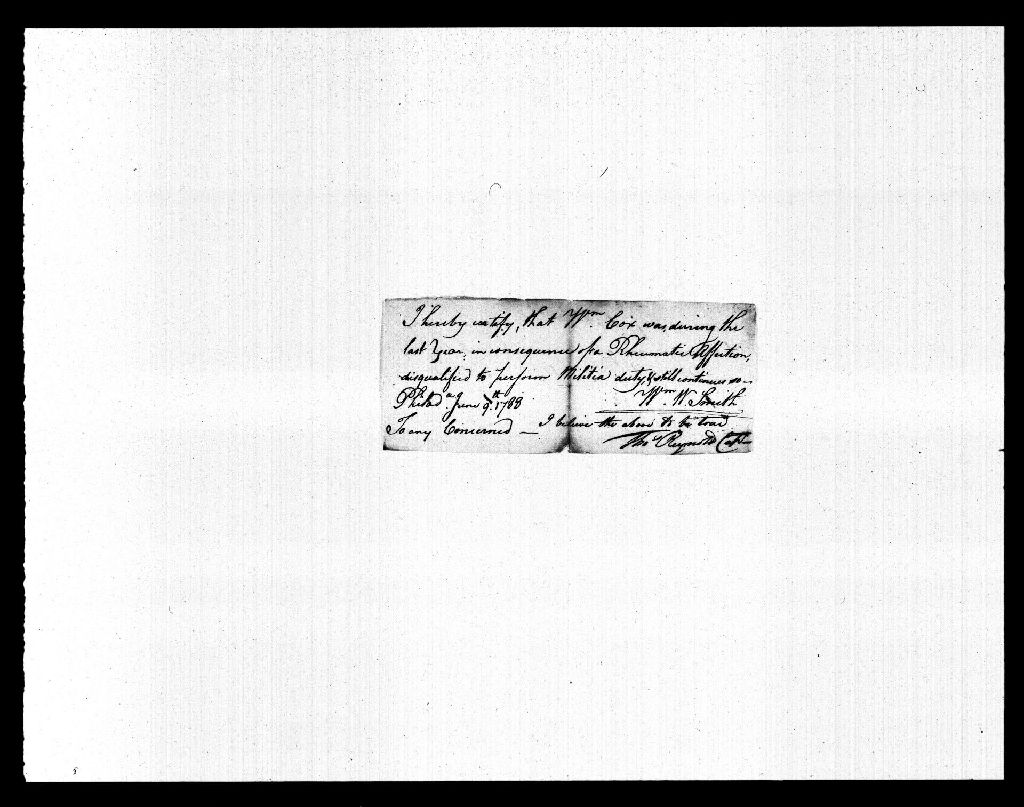 I hereby certify, that Wm. Cox was, during the
last Year, in consequence of a Rheumatic Affection,
disqualified to perform Militia duty, & still continues so—
Philada. June 9th. 1788 Wm. W. Smith
To any Concerned — I believe the above to be true
Thos Reynolds Capt